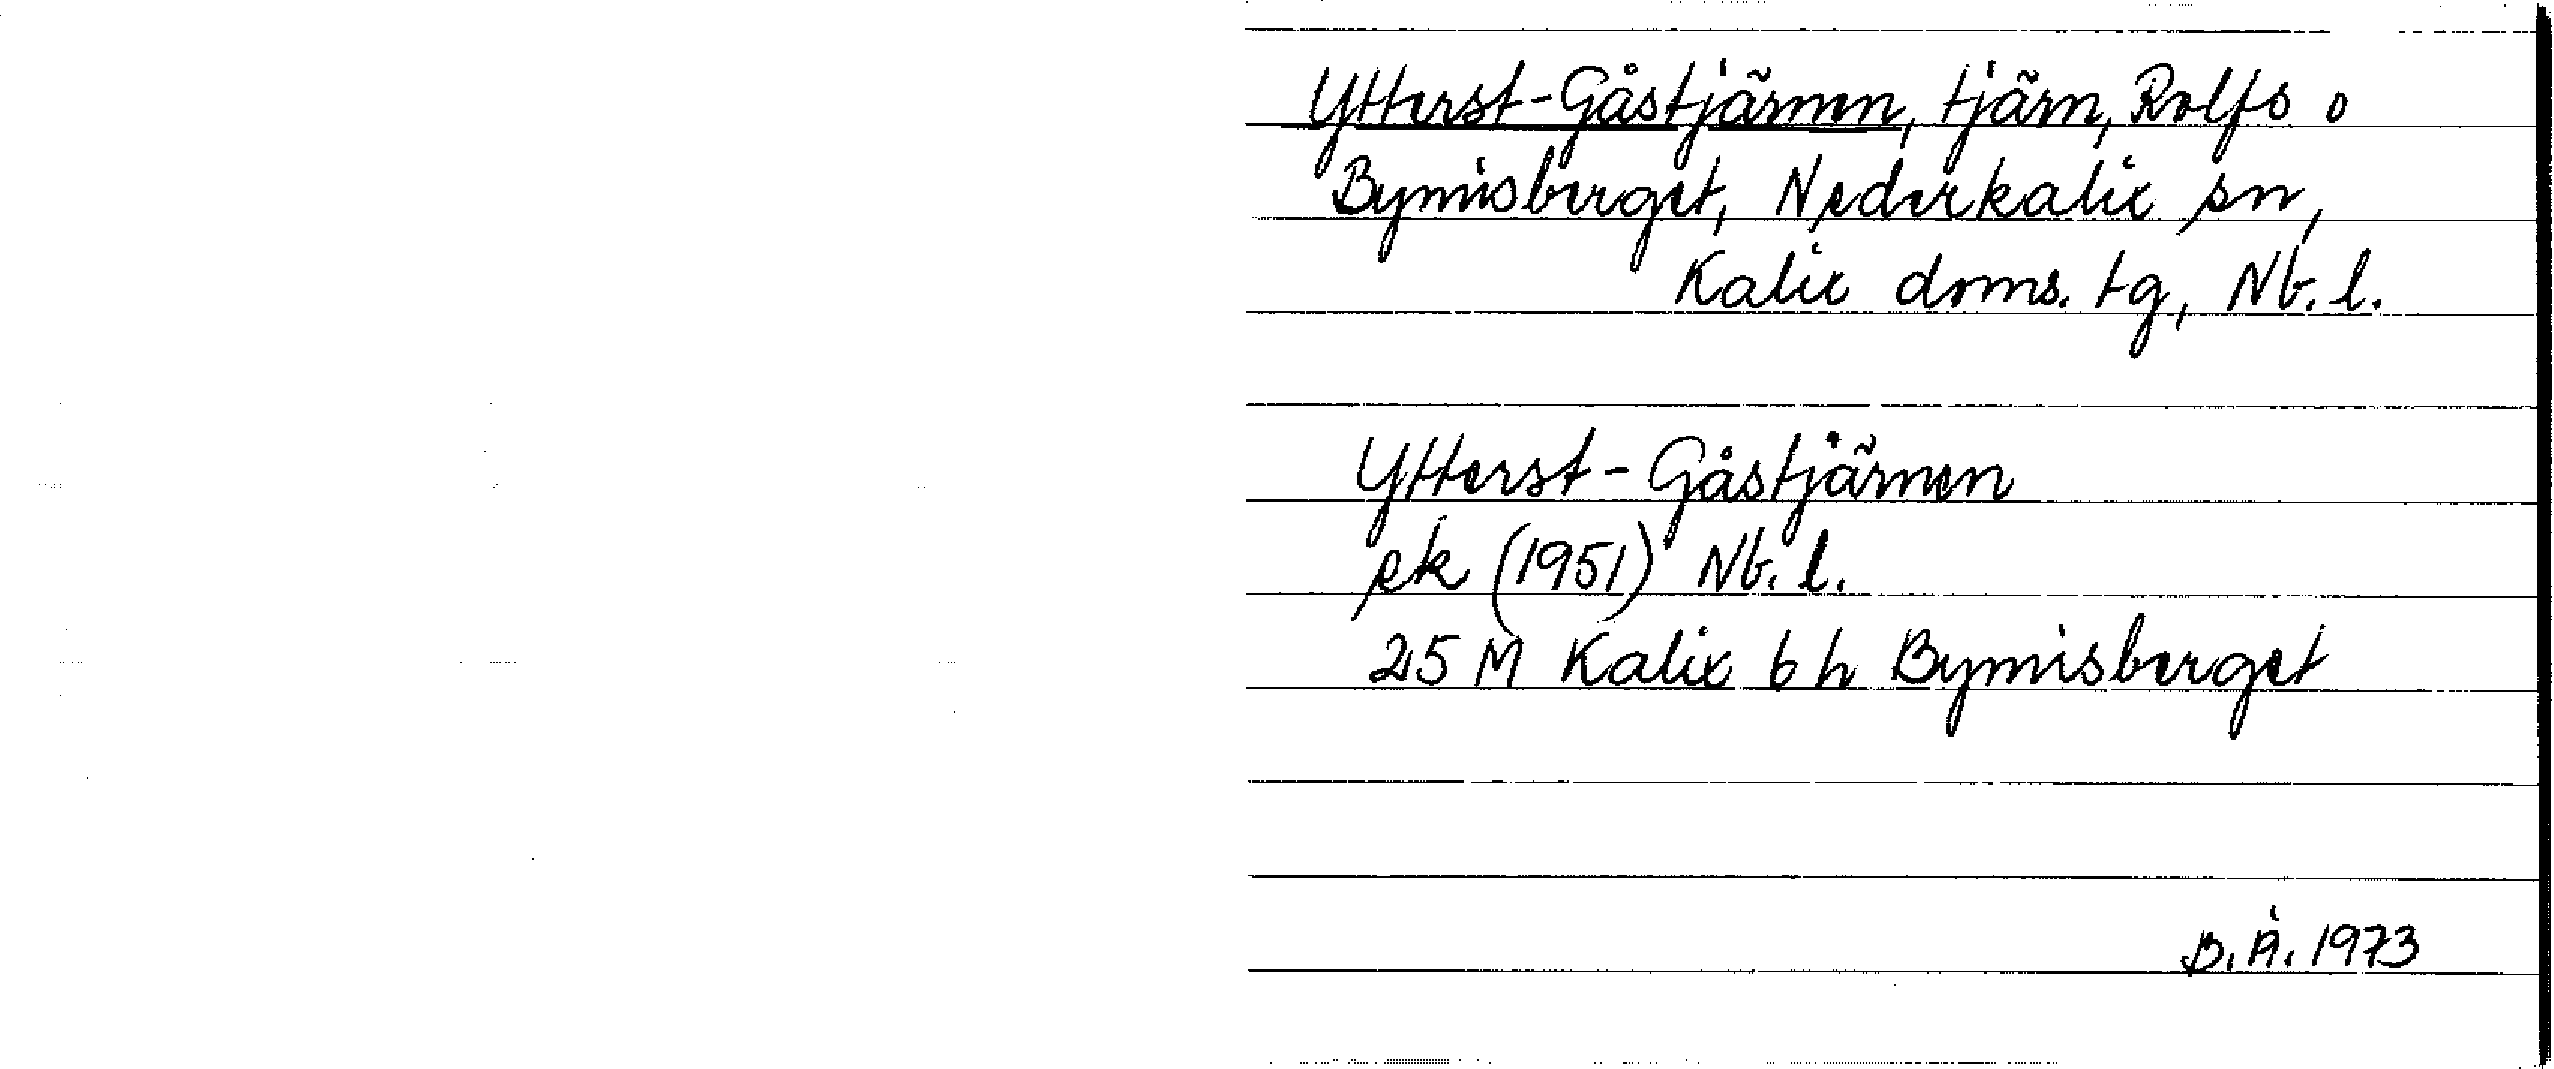 Ytterst-Gåstjärnen, tjärn, Rolfs o
Bymisberget, Nederkalix sn,
Kalix doms. tg, Nb. l.
Ytterst-Gåstjärnen
ek (1951) Nb. l.
25 M Kalix 6 h Bymisberget
B. Å. 1973